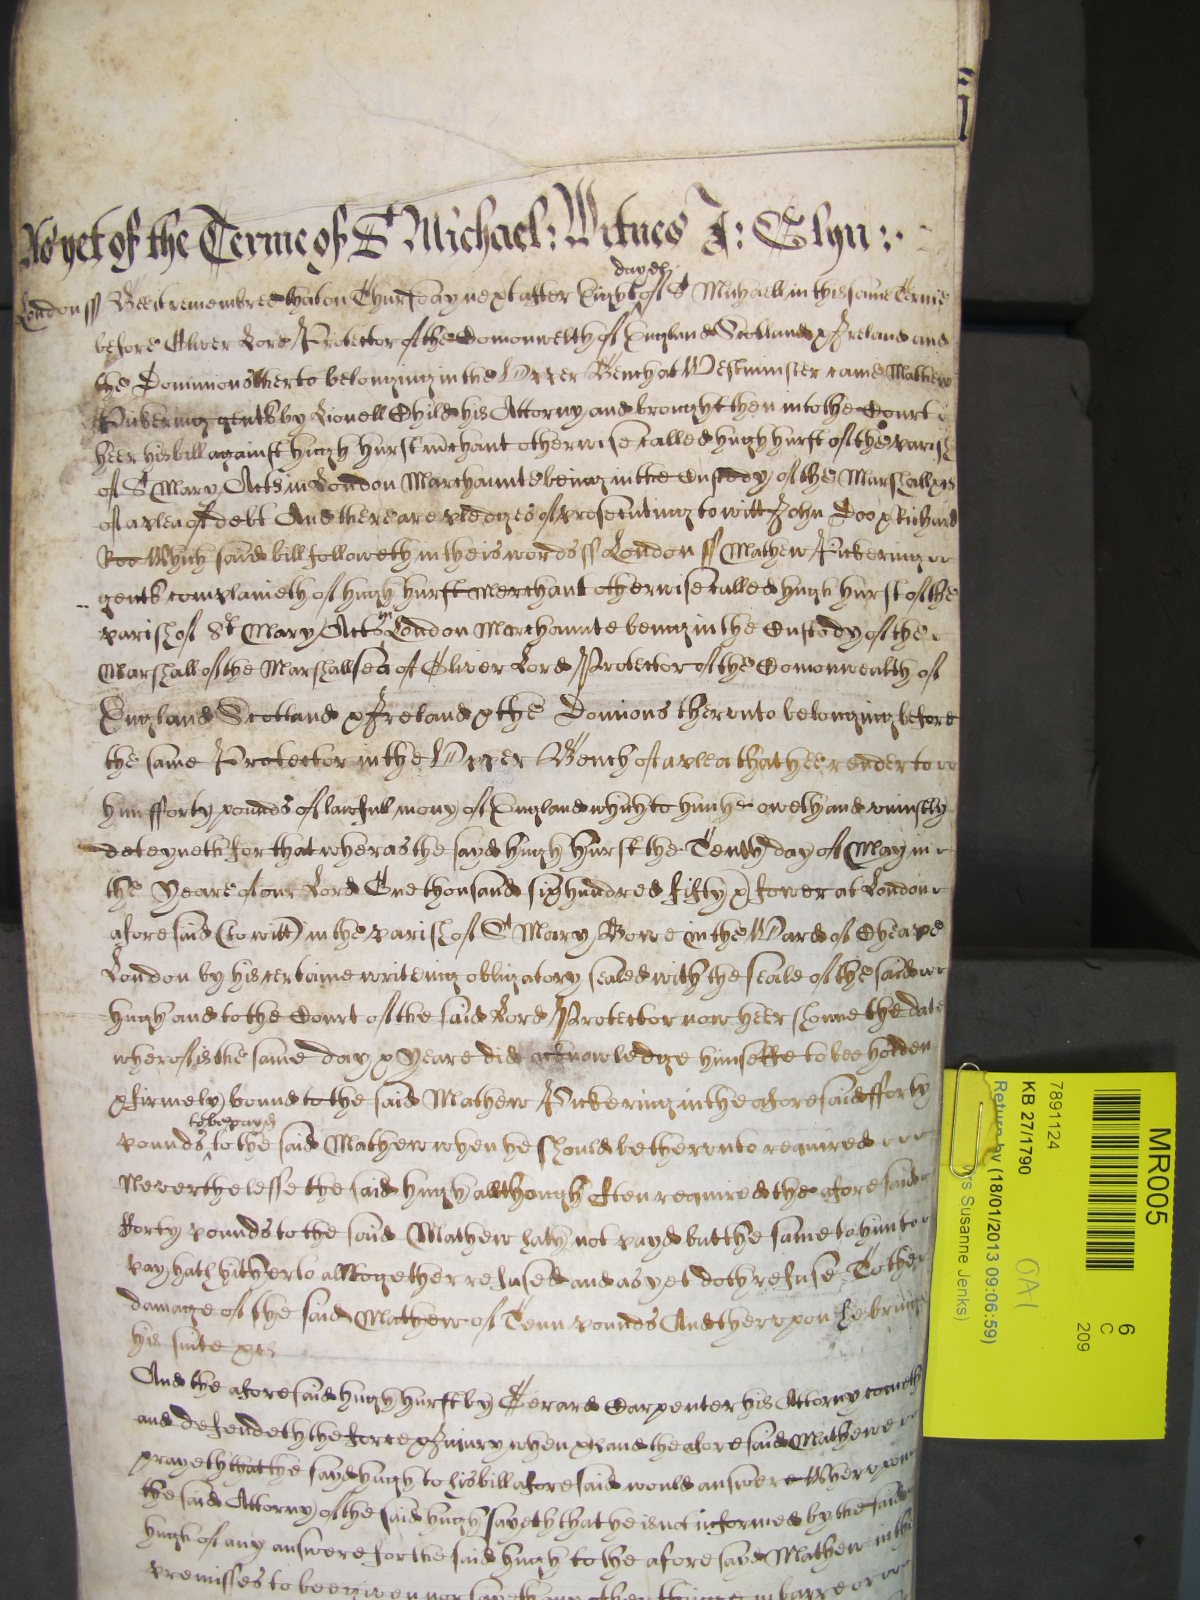 As yet of the Terme of St Michael: Witnes J: Glyn:
dayes
London ss Bee it remembred that on Thursday next after Eight of St Michaell in this same Terme
before Oliver Lord Protector of the Comonwelth of England Scotland & Ireland and
the Dominions therto belonging in the Upper Bench at Westminster came Mathew
Pickering gent by Lionell Child his Attorny and brought then into the Court
heer his bill against Hugh Hurst mchant otherwise called Hugh Hurst of the parish
of St Mary Acts in London Marchaunte being in the Custody of the Marshall &c
of a plea of debt And there are pledges of prosecuting to witt John Doo & Richard
Roo Which said bill followeth in theis words ss London ss Mathew Pickering
gent complaineth of Hugh Hurst Merchant otherwise called Hugh Hurst of the
in
parish of St Mary Acts London Marchaunte being in the Custody of the
Marshall of the Marshallsea of Oliver Lord Protector of the Comonwealth of
England Scotland & Ireland & the Domions therunto belonging before
the same Protector in the Upper Bench of a plea that hee render to
him fforty pounds of lawful mony of England which to him he oweth and uniustly
deteyneth for that wheras the sayd Hugh Hurst the Tenth day of May in
the Yeare of our Lord One thousand six hundred fifty & fower at London
aforesaid (to witt) in the parish of St Mary Bowe in the Ward of Cheape
London by his certaine writeing obligatory sealed with the seale of the said
Hugh and to the Court of the said Lord Protector now heer showne the date
wherof is the same day & Yeare did acknowledge himselfe to bee holden
& firmely bound to the said Mathew Pickering in the aforesaid fforty
to be payd
pounds to the said Mathew when he should be therunto required
Neverthelesse the said Hugh allthough Often required the aforesaid
fforty pounds to the said Mathew hath not payd but the same to him to
pay hath hitherto alltogether refused and as yet doth refuse To the
damage of the said Mathew of Tenn pounds And therupon he brings
his suite &c
And the aforesaid Hugh Hurst by Gerard Carpenter his Attorny cometh
and defendeth the force & Injury when &c and the aforesaid Mathewe
prayeth that the sayd Hugh to his bill aforesaid would answere Wherupon
the said Attorny of the said Hugh sayeth that he is not informed by the said
Hugh of any answere for the said Hugh to the aforesayd Mathew in the
premisses to bee given nor sayeth any other thinge in barre or
MR005
6
C
209
7891124
KB 27/1790
Return by (18/01/2013 09:06:59)
s Susanne Jenks)
OA1